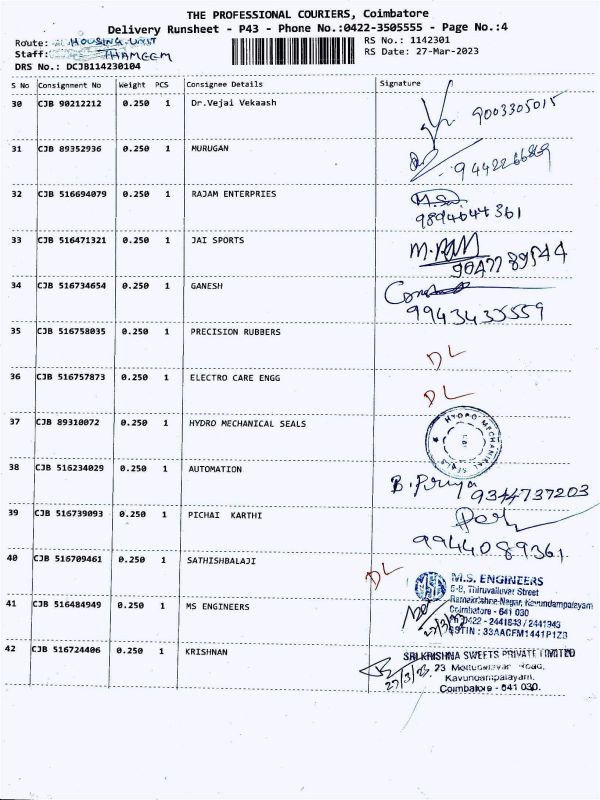 THE PROFESSIONAL COURIERS, Coimbatore
Delivery Runsheet - P43 - Phone No.:0422-3505555 - Page No.:4
Route: HOUSING UNIT RS No.: 1142301
Staff: THAMEEM RS Date: 27-Mar-2023
DRS No.: DCJB114230104
S No Consignment No Weight PCS Consignee Details Signature
30 CJB 90212212 0.250 1 Dr.Vejai Vekaash 9003305015
31 CJB 89352936 0.250 1 MURUGAN
32 CJB 516694079 0.250 1 RAJAM ENTERPRIES
9894644361
33 CJB 516471321 0.250 1 JAI SPORTS M.RAM
34 CJB 516734654 0.250 1 GANESH
9943433559
35 CJB 516758035 0.250 1 PRECISION RUBBERS
DL
36 CJB 516757873 0.250 1 ELECTRO CARE ENGG
DL
37 CJB 89310072 0.250 1 HYDRO MECHANICAL SEALS HYDRO MECHANICAL SEALS
38 CJB 516234029 0.250 1 AUTOMATION B. Priya 9344737203
39 CJB 516739093 0.250 1 PICHAI KARTHI
9944089361
40 CJB 516709461 0.250 1 SATHISHBALAJI DL
M.S. ENGINEERS
5-8, Thiruvalluvar Street
Ramakrishna Nagar, Kavundampalayam
Coimbatore - 641 030
41 CJB 516484949 0.250 1 MS ENGINEERS
Ph: 0422 - 2441843 / 2441943
GSTIN : 33AACFM1441P1ZB
27/3/23
42 CJB 516724406 0.250 1 KRISHNAN SRI KRISHNA SWEETS PRIVATE LIMITED
27/3/23 73 Road,
Kavundampalayam,
Coimbatore - 641 030.